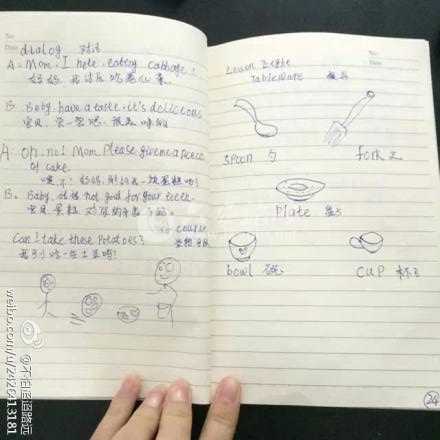 No:
Date
dialog 对话
A: Mom, I hate eating cabbage!
妈妈 我讨厌吃卷心菜
B. Baby, have a taste, it's delicious
宝贝 尝一尝吧 很美味的
A oh, no! Mom. Please give me a piece
of cake.
B. Baby, not good for your teeth.
宝贝 蛋糕 对你的牙齿不好
of course
当然可以
Can I take these Potatoes?
我可以吃一些土豆吗
No:
Date
Learn
Tableware 餐具
spoon 勺
fork 叉
Plate 盘
bowl 碗
cup 杯
24
weibo.com/u/2426213181